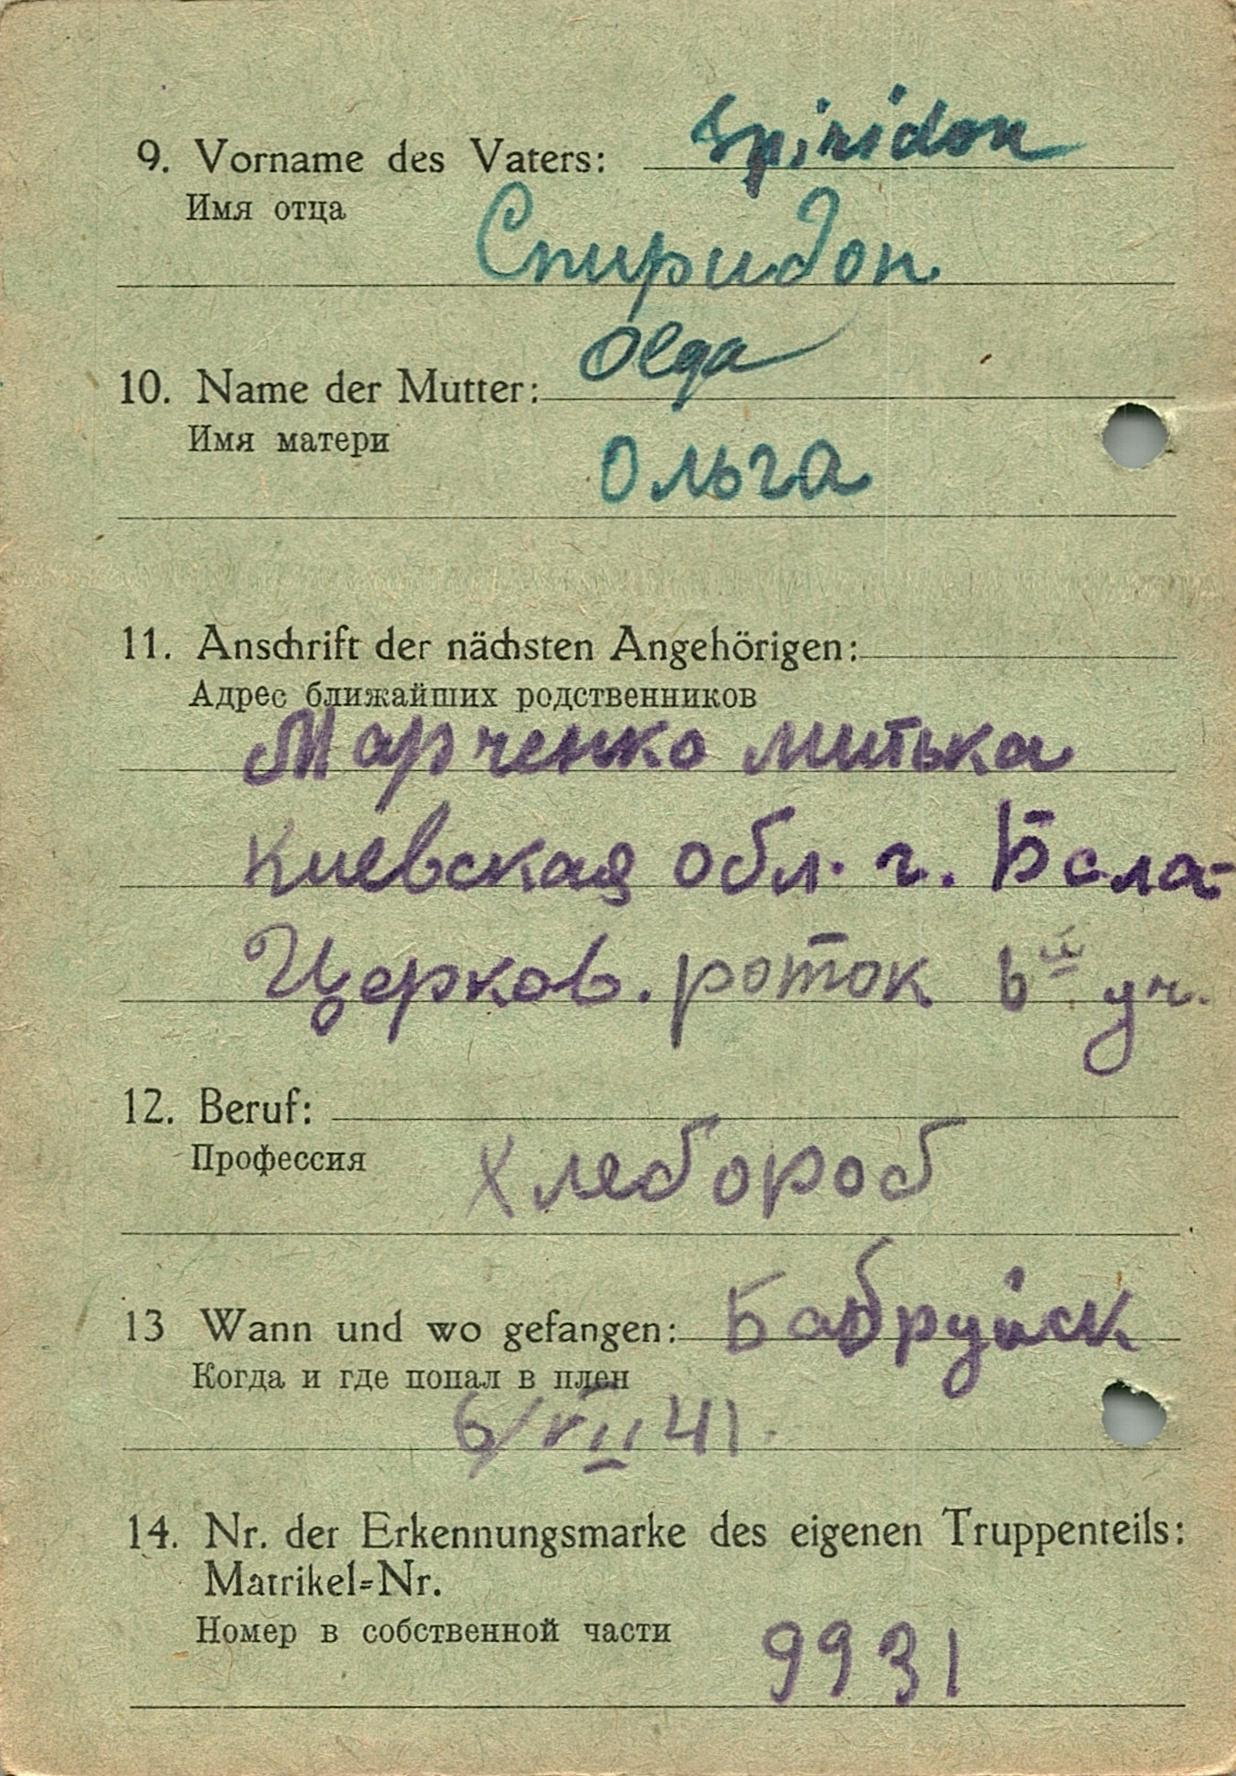 9. Vorname des Vaters: Spiridon
Имя отца
Спиридон
10. Name der Mutter: Olga
Имя матери
Ольга
11. Anschrift der nächsten Angehörigen:
Адрес ближайших родственников
Марченко Митька
Киевская обл. г. Бела-
Церков. роток 6ый уч.
12. Beruf:
Профессия
Хлебороб
13 Wann und wo gefangen: Бабруйск
Когда и где попал в плен
6/VII 41.
14. Nr. der Erkennungsmarke des eigenen Truppenteils:
Matrikel=Nr.
Номер в собственной части
9931